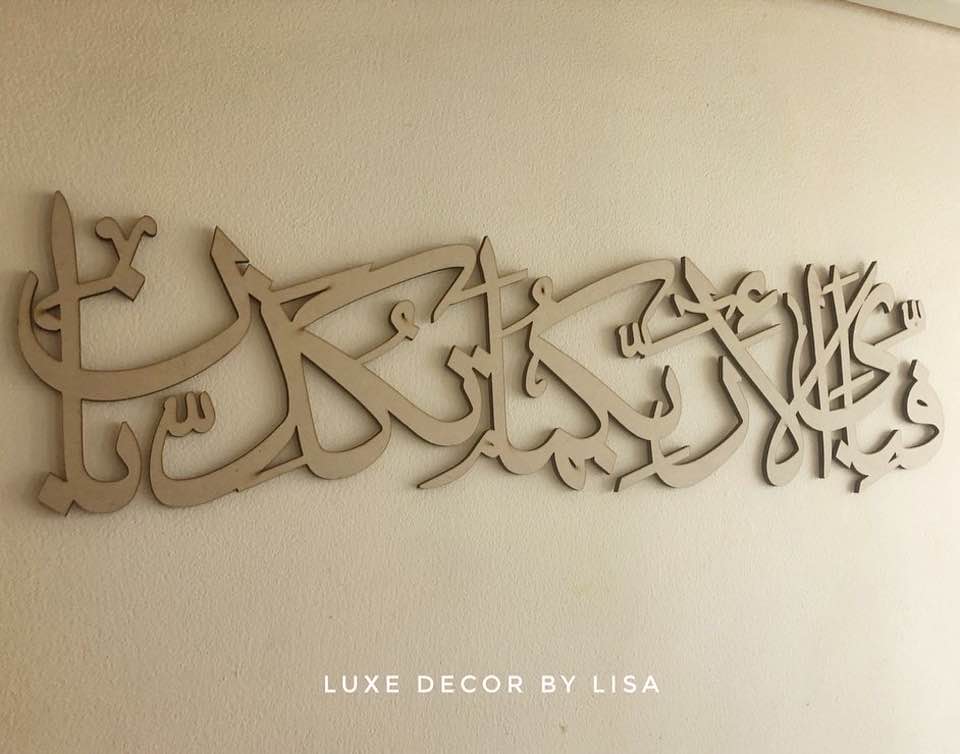 فبأي آلاء ربكما تكذبان
LUXE DECOR BY LISA